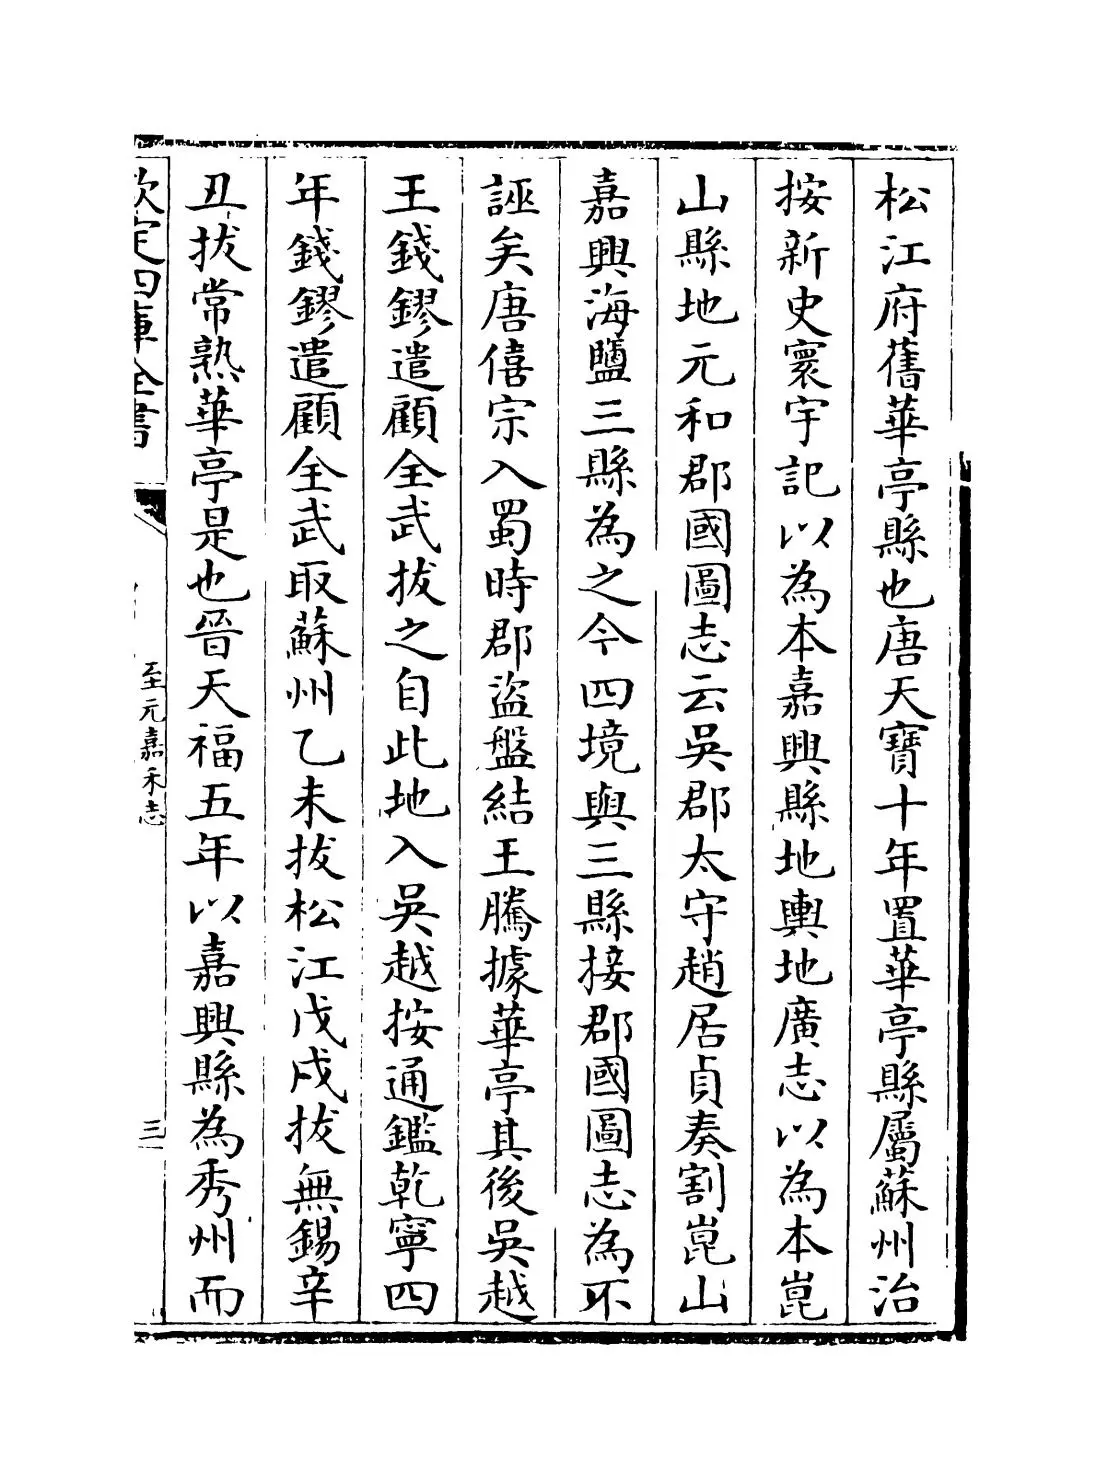 松江府舊華亭縣也唐天寶十年置華亭縣屬蘇州治
按新史寰宇記以為本嘉興縣地輿地廣志以為本崑
山縣地元和郡國圖志云吳郡太守趙居貞奏割崑山
嘉興海鹽三縣為之今四境與三縣接郡國圖志為不
誣矣唐僖宗入蜀時郡盜盤結王騰據華亭其後吳越
王錢鏐遣顧全武拔之自此地入吳越按通鑑乾寧四
年錢鏐遣顧全武取蘇州乙未拔松江戊戌拔無錫辛
丑拔常熟華亭是也晉天福五年以嘉興縣為秀州而
欽定四庫全書
至元嘉禾志
三